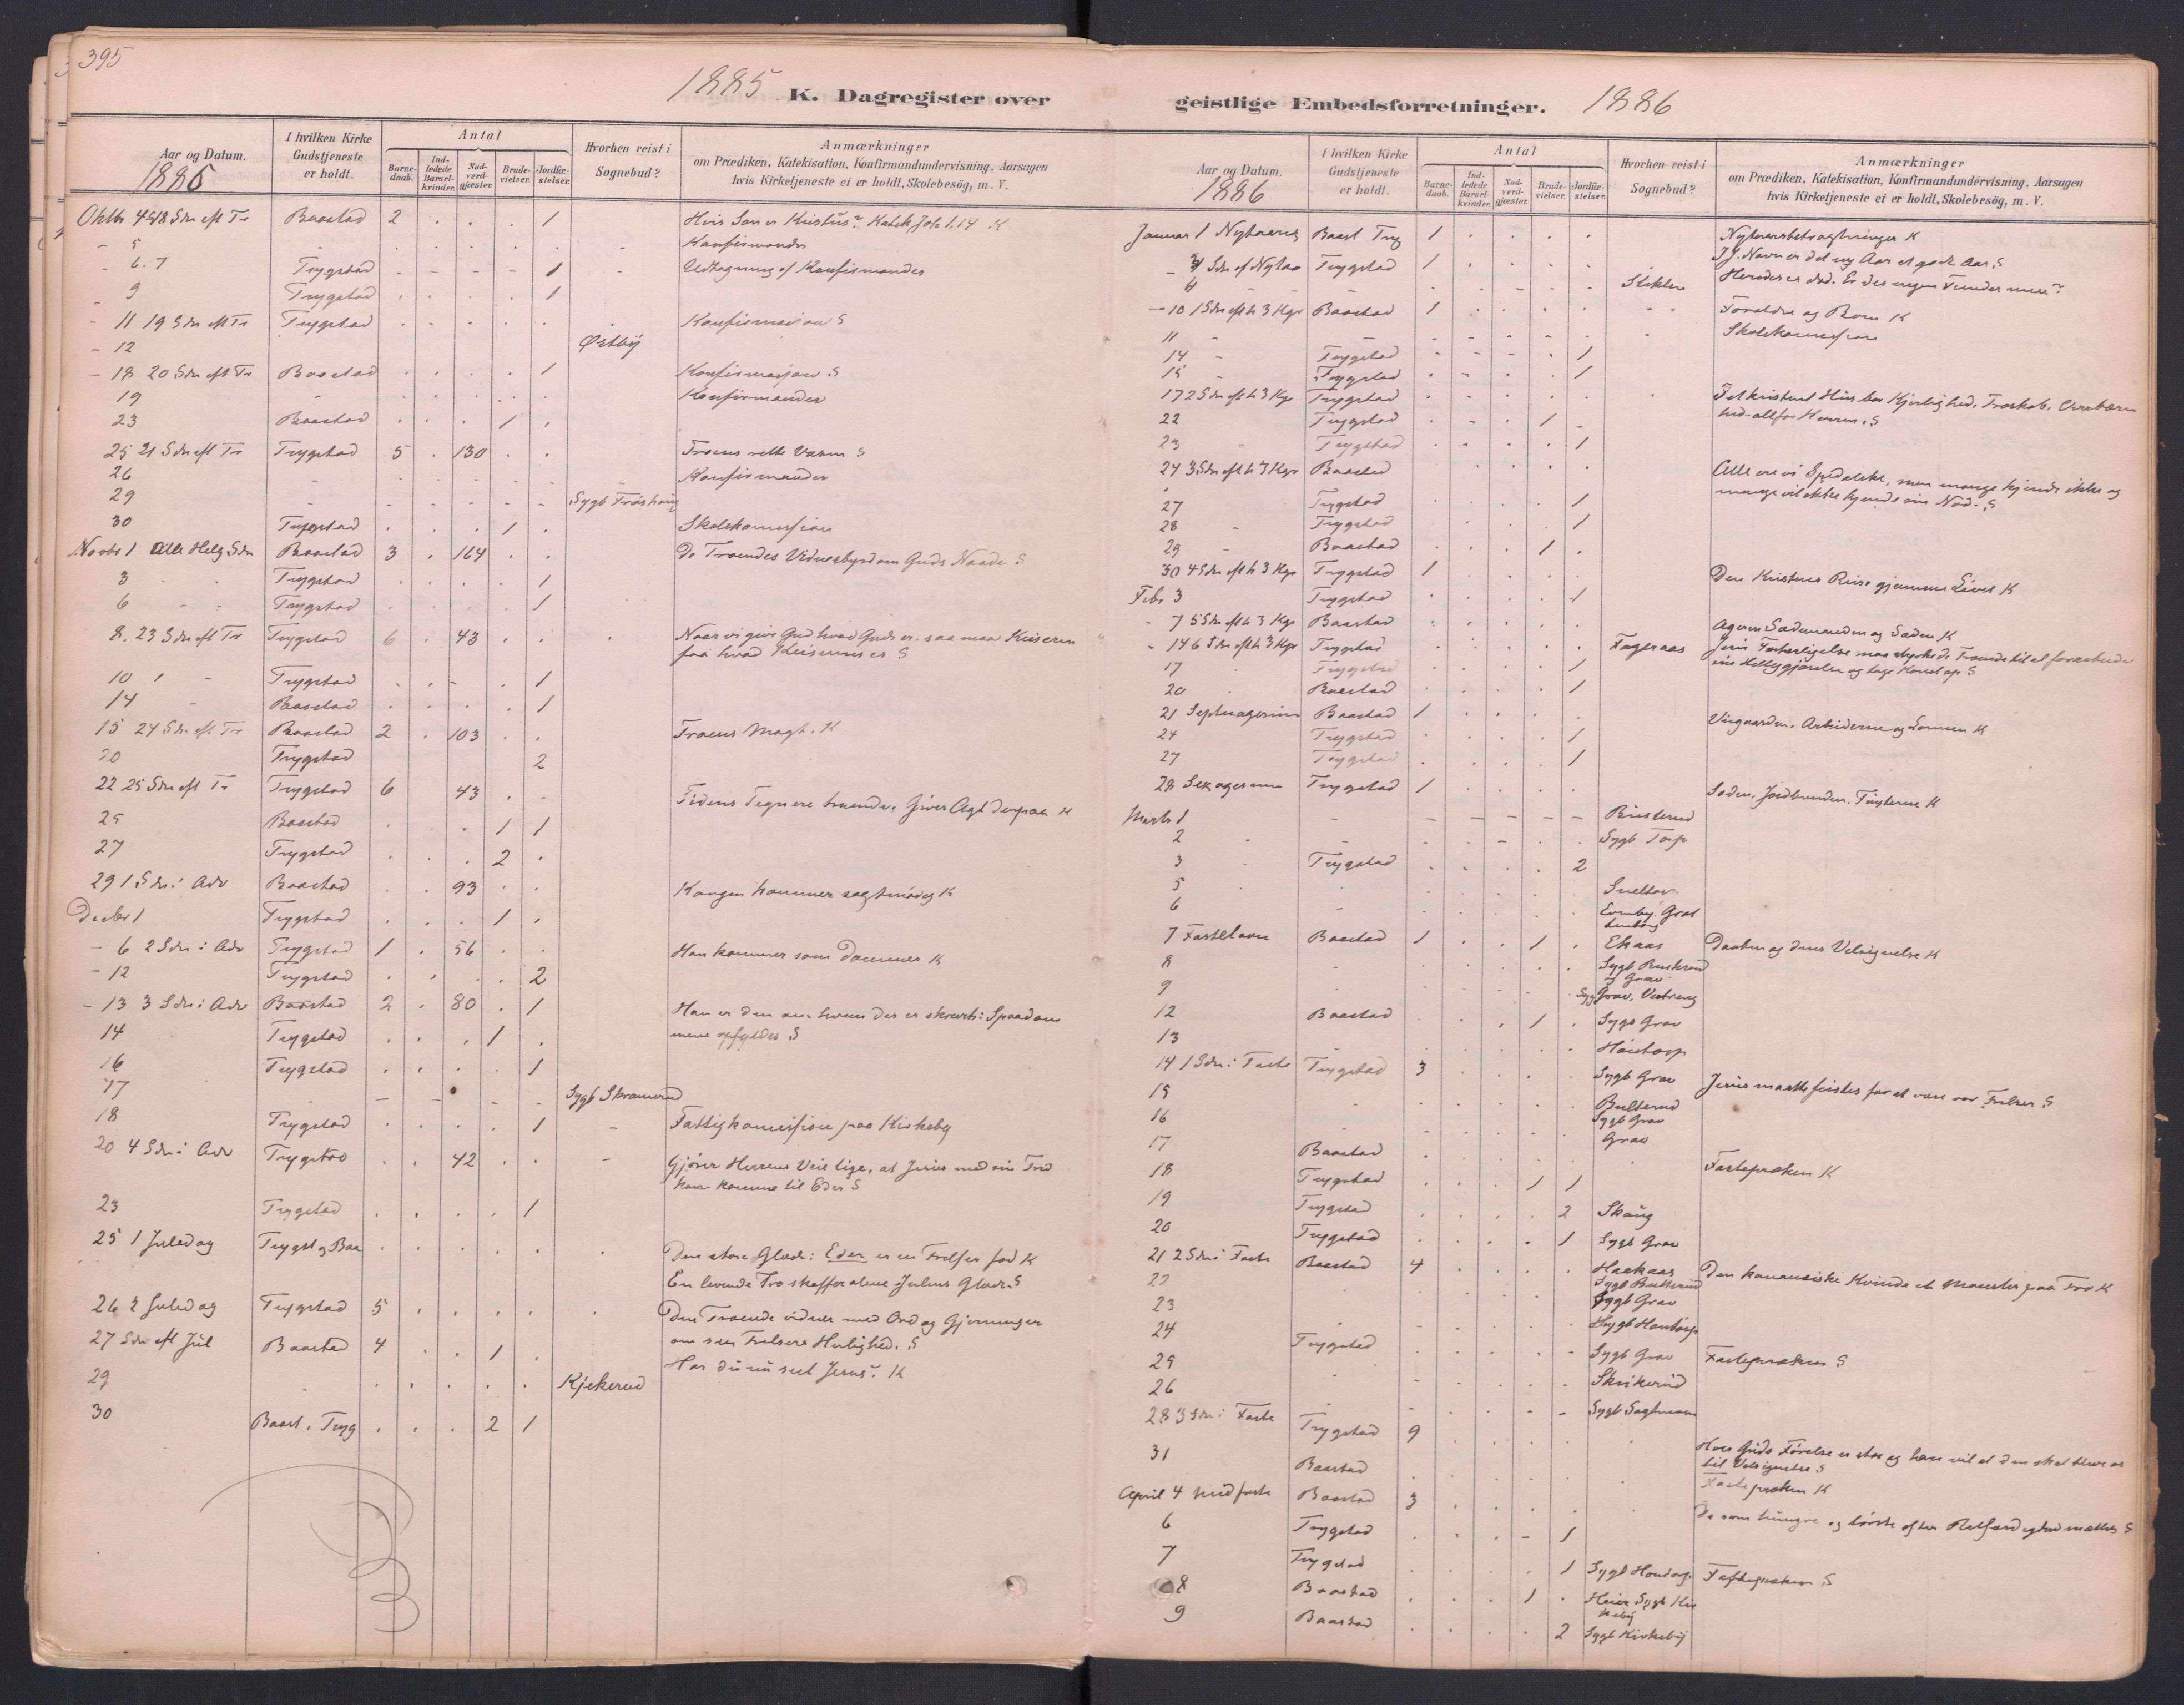 395
1885 K. Dagregister over
Aar og Datum.
1885
I hvilken Kirke
Gudstjeneste
er holdt.
Antal
Barne-
daab.
Ind-
ledede
Barsel-
kvinder.
Nad-
verd-
gjæster.
Brude-
vielser.
Jordfæ-
stelser.
Hvorhen reist i
Sognebud?
Anmærkninger
om Prædiken, Katekisation, Konfirmandundervisning, Aarsagen
hvis Kirketjeneste ei er holdt, Skolebesög, m. V.
Oktbr 4 18 Sdn eft Tr Baastad 2 . . . 1 Hvis Søn er Kristus? Katek. Joh 1,14 K
- 5 Konfirmander
- 6. 7 Trygstad - - - - 1 Udtagning af Konfirmander
- 9 Trygstad . . . . 1
- 11 19 Sdn eft Tr Trygstad . . . . . Konfirmasjon S
- 12 Østby
- 18 20 Sdn eft Tr Baastad . . . . 1 Konfirmasjon S
19 Konfirmander
23 Baastad . . . 1 .
25 21 Sdn eft Tr Trygstad 5 . 130 . . Troens rette Væsen S
26 Konfirmander
29 Sygb Frøshaug
30 Trygstad . . . 1 . Skolekommission
Novbr 1 Alle Helg. Sdn Baastad 3 . 164 . . De Troendes Vidnesbyrd om Guds Naade S
3 Trygstad . . . . 1
6 Trygstad . . . . 1
8. 23 Sdn eft Tr Trygstad 6 . 43 . . Naar vi give Gud hvad Guds er, saa maa Keiseren
faa hvad Keiserens er S
10 Trygstad . . . . 1
14 Baastad . . . . 1
15 24 Sdn eft Tr Baastad 2 . 103 . . Troens Magt. K
20 Trygstad 2
22 25 Sdn eft Tr Trygstad 6 43 . . Tidens Tegn ere truende, Giver Agt derpaa K
25 Baastad . . . 1 1
27 Trygstad . . . 2 .
29 1 Sdn i Adv Baastad . . 93 . . Kongen kommer sagtmodig K
Decbr 1 Trygstad . . . 1 .
- 6 2 Sdn i Adv Trygstad 1 . 56 . . Han kommer som Dommer K
- 12 Trygstad . . . . 2
- 13 3 Sdn i Adv Baastad 2 . 80 . 1 Han er den om hvem der er skrevet: Spaadom
mene opfyldes S
14 Trygstad . . . 1 .
16 Trygstad . . . . 1
17 Sygb Skramerud
18 Trygstad . . . . 1 Fattigkommission paa Kirkeby
20 4 Sdn i Adv Trygstad . . 42 . . Gjører Herrens Veie lige, at Jesus med sin Fred
kan komme til Eder S
23 Trygstad . . . . 1
25 1 Juledag Trygst og Baa . . . . . Den store Glæde: Eder er en Frelser fød K
En levende Tro skaffer alene Julens Glæde. S
26 2 Juledag Trygstad 5 . . . . Den Troende vidner med Ord og Gjerninger
om sin Frelsers Herlighed. S
27 Sdn eft Jul Baastad 4 . . 1 . Har du nu seet Jesus? K
29 Kjekerud
30 Baast. Tryg . . . 2 1
geistlige Embedsforretninger. 1886
Aar og Datum.
1886
I hvilken Kirke
Gudstjeneste
er holdt.
Antal
Barne-
daab.
Ind-
ledede
Barsel-
kvinder.
Nad-
verd-
gjæster.
Brude-
vielser.
Jordfæ-
stelser.
Hvorhen reist i
Sognebud?
Anmærkninger
om Prædiken, Katekisation, Konfirmandundervisning, Aarsagen
hvis Kirketjeneste ei er holdt, Skolebesög, m. V.
Januar 1 Nytaarsd Baast Tryg 1 . . . . Nytaarsbetragtninger K
I J. Navn er det ny Aar et godt Aar. S
3 Sdn ef Nytaar Trygstad 1 . . . . Herodes er død. Er der ingen Fiender mere?
4
- 10 1 Sdn eft h 3 Kgr Baastad 1 . . . . Forældre og Børn K
11 Skolekommission
14 Trygstad . . . . 1
15 Trygstad . . . . 1
17 2 Sdn eft h 3 Kgr Trygstad . . . . . Det kristent Hus bør Kjærlighed, Troskab,
alt for Herren. S
22 Trygstad . . . 1 .
23 Trygstad . . . . 1
24 3 Sdn eft h 3 Kgr Baastad . . . . . Alle ere vi Spedalske, men mange kjende ikke og
mange vil ikke kjende sin Nød. S
27 Trygstad . . . . 1
28 Trygstad . . . . 1
29 Baastad . . . 1 .
30 4 Sdn eft h 3 Kgr Trygstad 1 . . . . Den Kristnes Reise gjennem Livet K
Febr 3 Trygstad . . . . 1
- 7 5 Sdn eft h 3 Kgr Baastad . . . . . Ageren Sædemanden og Sæden K
- 14 6 Sdn eft h 3 Kgr Trygstad . . . . . Fageraas Jesu Forherligelse maa styrke de Troende til at
sin Helliggjørelse og tage Korset op S
17 Trygstad . . . . 1
20 Baastad . . . . 1
21 Septuagesima Baastad 1 . . . . Vingaarden, Arbeiderne og Lønnen K
24 Trygstad . . . . 1
27 Trygstad . . . . 1
28 Sexagesima Trygstad 1 . . . . Sæden, Jordbunden, Frugterne K
Marts 1
2 Sygb Torp
3 Trygstad . . . . 2
5
6 Grav
7 Fastelavn Baastad 1 . . 1 . Ekaas Daaben og dens Velsignelse K
8 Sygb
og Grav
9 Sygb Grav, Vestreng
12 Baastad . . . 1 . Sygb Grav
13
14 1 Sdn i Faste Trygstad 3 . . . . Sygb Grav Jesus maatte fristes for at være vor Frelser S
15 Bulterud
16 Sygb Grav
17 Baastad . . . . . Grav Fastepræken K
18 Trygstad . . . 1 1
19 Trygstad . . . . 2 Skaug
20 Trygstad . . . . 1 Sygb Grav
21 2 Sdn i Faste Baastad 4 . . . . Haekaas Den kananæiske Kvinde et Mønster paa Tro K
22 Sygb Bulterud
23 Sygb Grav
24 Trygstad Sygb
25 Sygb Grav Fastepræken S
26
28 3 Sdn i Faste Trygstad 9 Sygb
Guds Førelse er stor og han vil at den skal blive os
til Velsignelse S
31 Baastad Fastepræken K
April 4 Midfaste Baastad 3 . . . . De som hungre og tørste efter Retfærdighed mættes S
6 Trygstad . . . - 1
7 Trygstad . . . . 1 Sygb Fastepræken S
8 Baastad . . . 1 . Sygb Kir
keby
9 Baastad . . . . 2 Sygb Kirkeby